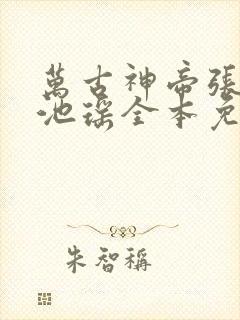 萬古神帝張
池瑤全本免
朱智稱